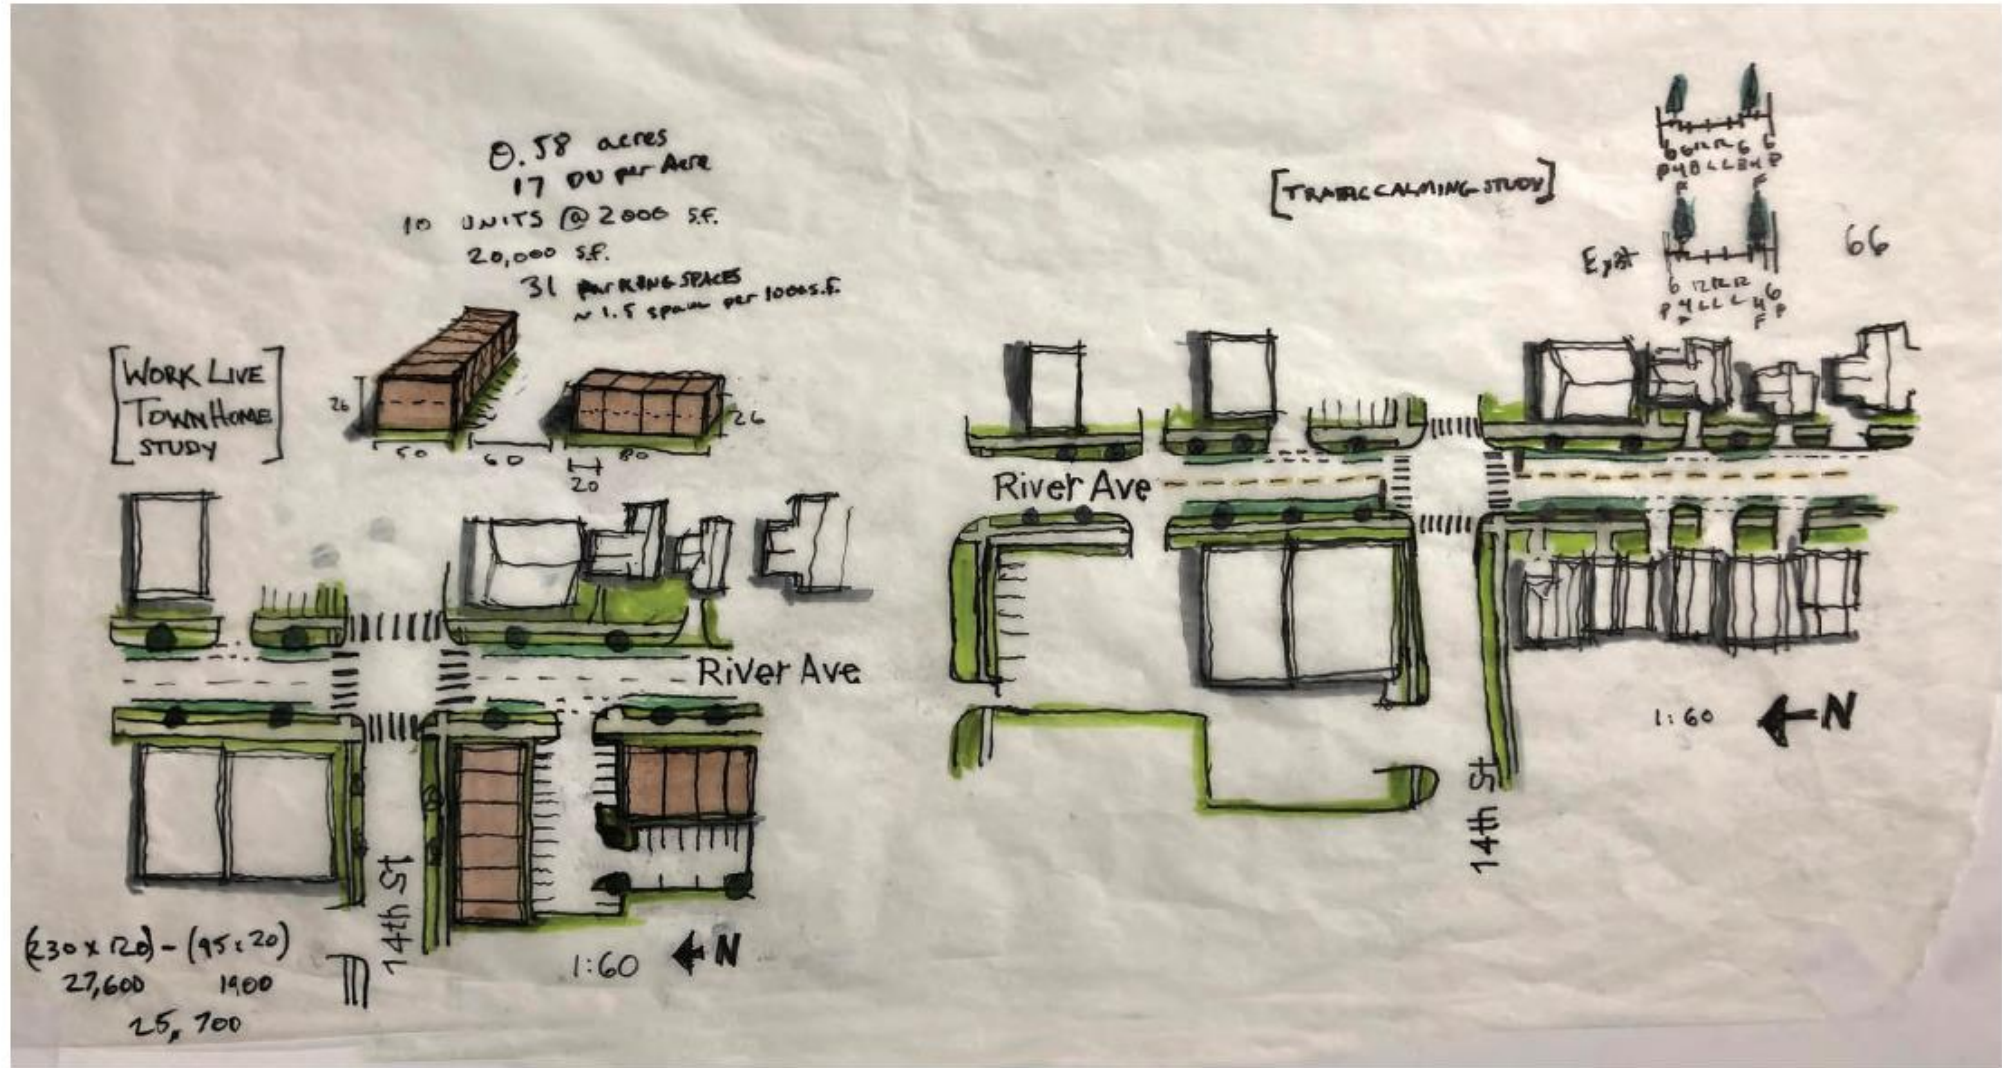 0.58 acres
17 DU per Acre
10 UNITS @ 2000 S.F.
20,000 S.F.
31 PARKING SPACES
~ 1.5 spaces per 1000 s.f.
[WORK LIVE
TOWNHOME
STUDY]
26
50
60
80
20
26
River Ave
14th St
(230 x 120) - (95 x 20)
27,600 1900
25,700
1:60 N
[TRAFFIC CALMING STUDY]
6 6 12 12 6 6
P 4 B L L B 4 P
F F
Exist
66
6 12 12 12 6
P 4 L L L 4 P
F F
River Ave
14th St
1:60 N